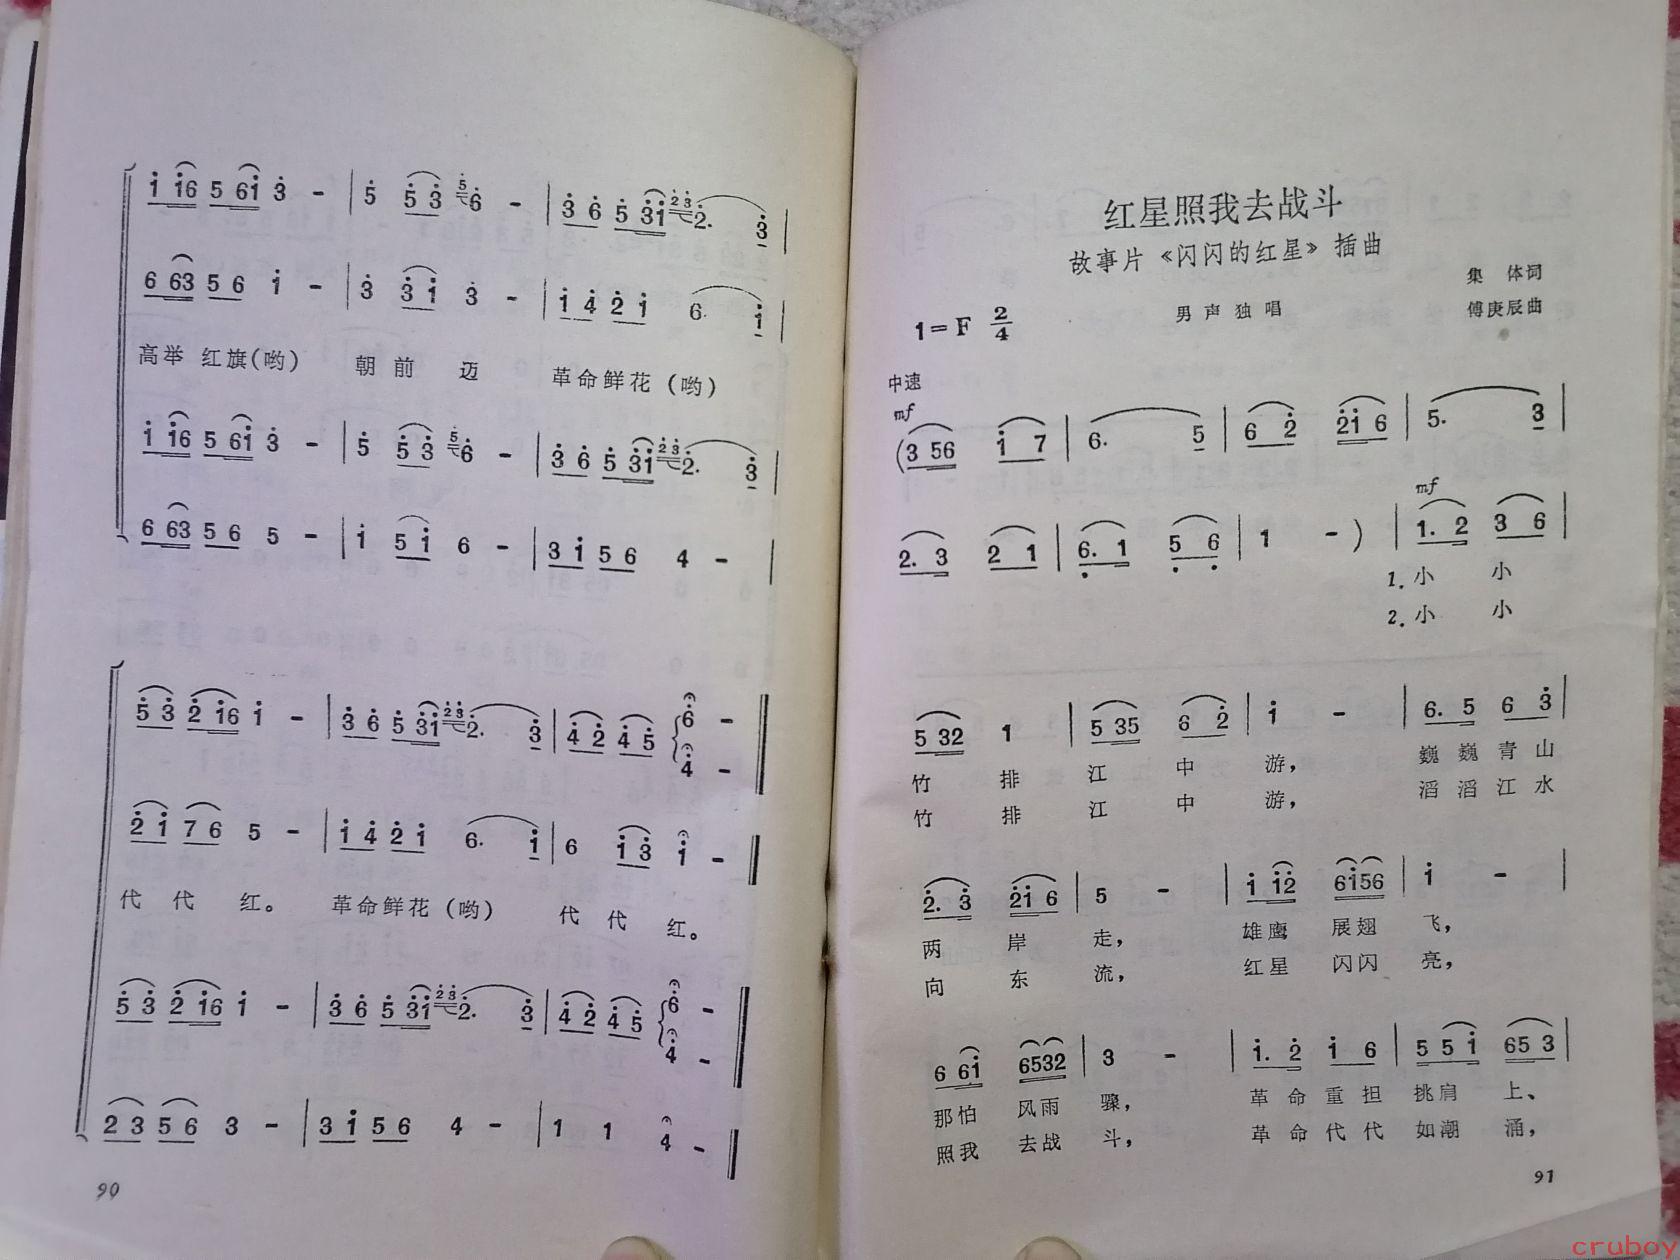 i i6 5 6i 3 - | 5 5 3 5 6 - | 3 6 5 3i 2 3 2. 3 |
6 63 5 6 i - | 3 3 i 3 - | i 4 2 i 6. i |
高举 红旗(哟) 朝 前 迈 革命鲜花(哟)
i i6 5 6i 3 - | 5 5 3 5 6 - | 3 6 5 3i 2 3 2. 3 |
6 63 5 6 5 - | i 5 i 6 - | 3 i 5 6 4 - |
5 3 2 i6 i - | 3 6 5 3i 2 3 2. 3 | 4 2 4 5 6 -
4 -
2 i 7 6 5 - | i 4 2 i 6. i | 6 i 3 i -
代 代 红。 革命鲜花(哟) 代 代 红。
5 3 2 i6 i - | 3 6 5 3i 2 3 2. 3 | 4 2 4 5 6 -
4 -
2 3 5 6 3 - | 3 i 5 6 4 - | 1 1 4 -
90
红星照我去战斗
故事片《闪闪的红星》插曲
集 体词
男声独唱
傅庚辰曲
1=F 2/4
中速
mf
(3 56 i 7 | 6. 5 | 6 2 2i 6 | 5. 3 |
mf
2. 3 2 1 | 6. 1 5 6 | 1 -) | 1. 2 3 6 |
1. 小 小
2. 小 小
5 32 1 | 5 35 6 2 | i - | 6. 5 6 3 |
竹 排 江 中 游, 巍巍青山
竹 排 江 中 游, 滔滔江水
2. 3 2i 6 | 5 - | i i2 6i56 | i - |
两 岸 走, 雄鹰 展翅 飞,
向 东 流, 红星 闪闪 亮,
6 6i 6532 | 3 - | i. 2 i 6 | 5 5 i 65 3 |
那怕 风雨 骤, 革命重担 挑肩 上、
照我 去战 斗, 革命代代 如潮 涌,
91
cruboy